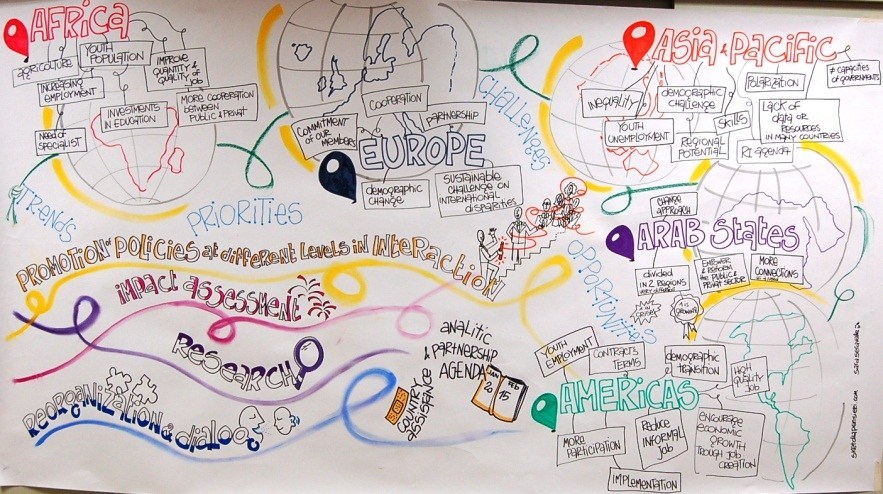 AFRICA
AGRICULTURE
YOUTH
POPULATION
IMPROVE
QUANTITY &
QUALITY of
JOB
INCREASING
EMPLOYMENT
INVESTMENTS
IN EDUCATION
MORE COOPERATION
between
PUBLIC & PRIVAT
Need of
SPECIALIST
TRENDS
PRIORITIES
COMMITMENT
OF OUR
MEMBERS
COOPERATION
PARTNERSHIP
EUROPE
demographic
CHANGE
SUSTAINABLE
CHALLENGE ON
INTERNATIONAL
disparities
CHALLENGES
ASIA & PACIFIC
INEQUALITY
demographic
CHALLENGE
POLARIZATION
≠ CAPACITIES
OF GOVERNMENTS
YOUTH
UNEMPLOYMENT
SKILLS
LACK OF
DATA OR
RESOURCES
IN MANY COUNTRIES
REGIONAL
POTENTIAL
RI AGENDA
CHANGE
APPROACH
ARAB STATES
divided
IN 2 REGIONS
EMPOWER
& REFORM
the PUBLIC &
PRIVAT SECTOR
MORE
CONNECTIONS
OPPORTUNITIES
PROMOTION OF POLICIES at different LEVELS IN INTERACTION
impact assessment
RESEARCH
REORGANIZATION & dialog
ANALITIC
& PARTNERSHIP
AGENDA
JAN
2
FEB
15
COUNTRY
ASSISTENCE
YOUTH
EMPLOYMENT
CONTRACTS
TERMS
demographic
& TRANSITION
HIGH
QUALITY
JOB
AMERICAS
MORE
PARTICIPATION
REDUCE
INFORMAL
JOB
ENCOURAGE
ECONOMIC
GROWTH
TROUGH JOB
CREATION
IMPLEMENTATION